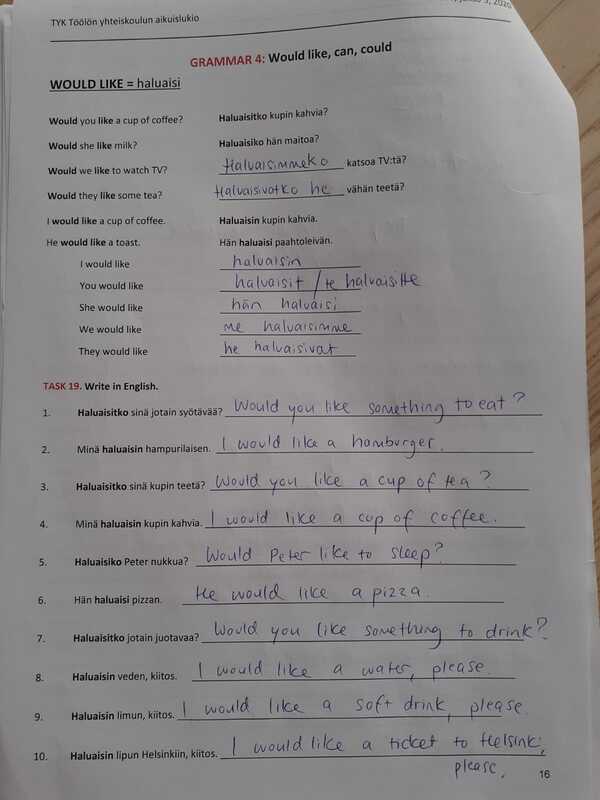 TYK Töölön yhteiskoulun aikuislukio
3, 2020
GRAMMAR 4: Would like, can, could
WOULD LIKE = haluaisi
Would you like a cup of coffee? Haluaisitko kupin kahvia?
Would she like milk? Haluaisiko hän maitoa?
Would we like to watch TV? Haluaisimmeko katsoa TV:tä?
Would they like some tea? Haluaisivatko he vähän teetä?
I would like a cup of coffee. Haluaisin kupin kahvia.
He would like a toast. Hän haluaisi paahtoleivän.
I would like haluaisin
You would like haluaisit / te haluaisitte
She would like hän haluaisi
We would like me haluaisimme
They would like he haluaisivat
TASK 19. Write in English.
1. Haluaisitko sinä jotain syötävää? Would you like something to eat?
2. Minä haluaisin hampurilaisen. I would like a hamburger.
3. Haluaisitko sinä kupin teetä? Would you like a cup of tea?
4. Minä haluaisin kupin kahvia. I would like a cup of coffee.
5. Haluaisiko Peter nukkua? Would Peter like to sleep?
6. Hän haluaisi pizzan. He would like a pizza.
7. Haluaisitko jotain juotavaa? Would you like something to drink?
8. Haluaisin veden, kiitos. I would like a water, please.
9. Haluaisin limun, kiitos. I would like a soft drink, please.
10. Haluaisin lipun Helsinkiin, kiitos. I would like a ticket to Helsinki,
please.
16